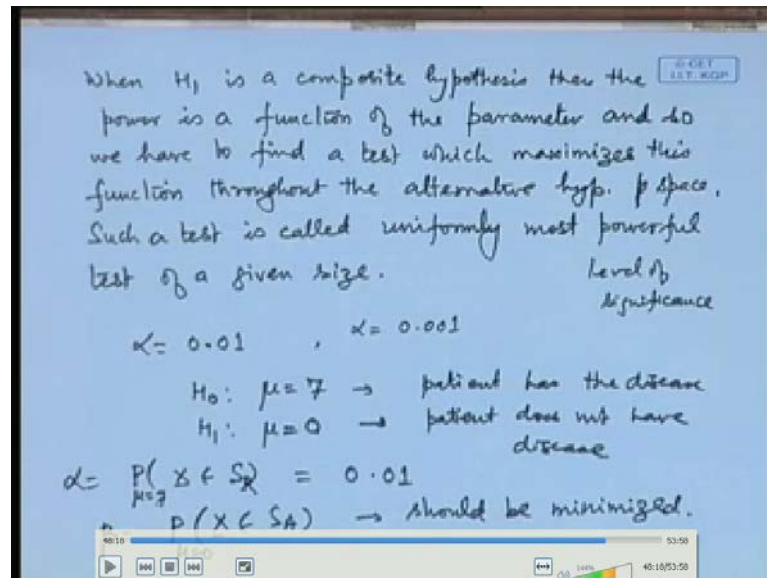 © CET
I.I.T. KGP
When H₁ is a composite hypothesis then the
power is a function of the parameter and so
we have to find a test which maximizes this
function throughout the alternative hyp. p space.
Such a test is called uniformly most powerful
test of a given size.
Level of
significance
α = 0.01 , α = 0.001
H₀: μ = 7 → patient has the disease
H₁: μ = 0 → patient does not have
disease
α = P(X ∈ S_R) = 0.01
μ=7
P(X ∈ S_A) → should be minimized.
48:18
53:58
100%
48:18/53:58